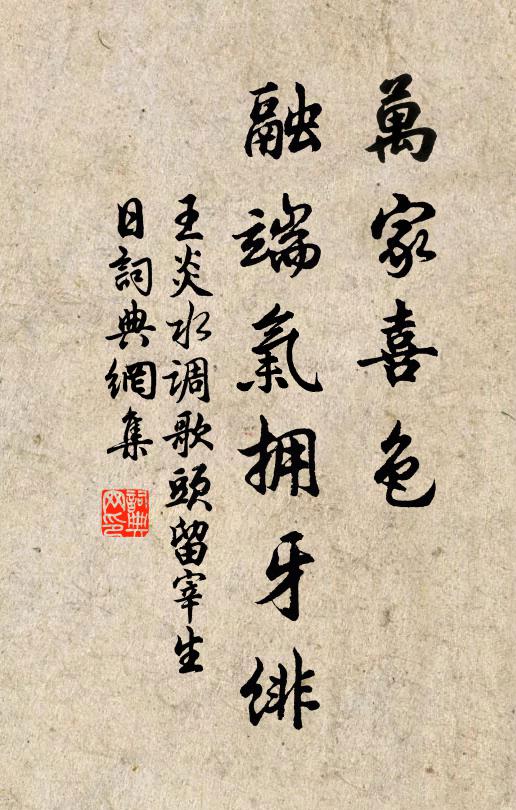 萬家喜色
融端氣拥牙緋
王炎水调歌頭留宰生
日詞典網集
詞典网印